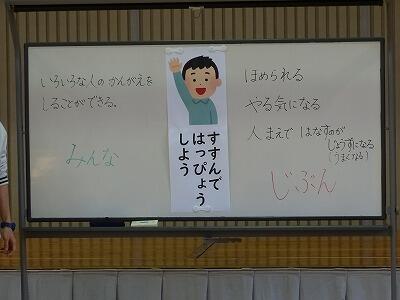 いろいろな人のかんがえを
しることができる。
みんな
すすんで
はっぴょう
しよう
ほめられる
やる気になる
人まえではなすのが
じょうずになる
(うまくなる)
じぶん